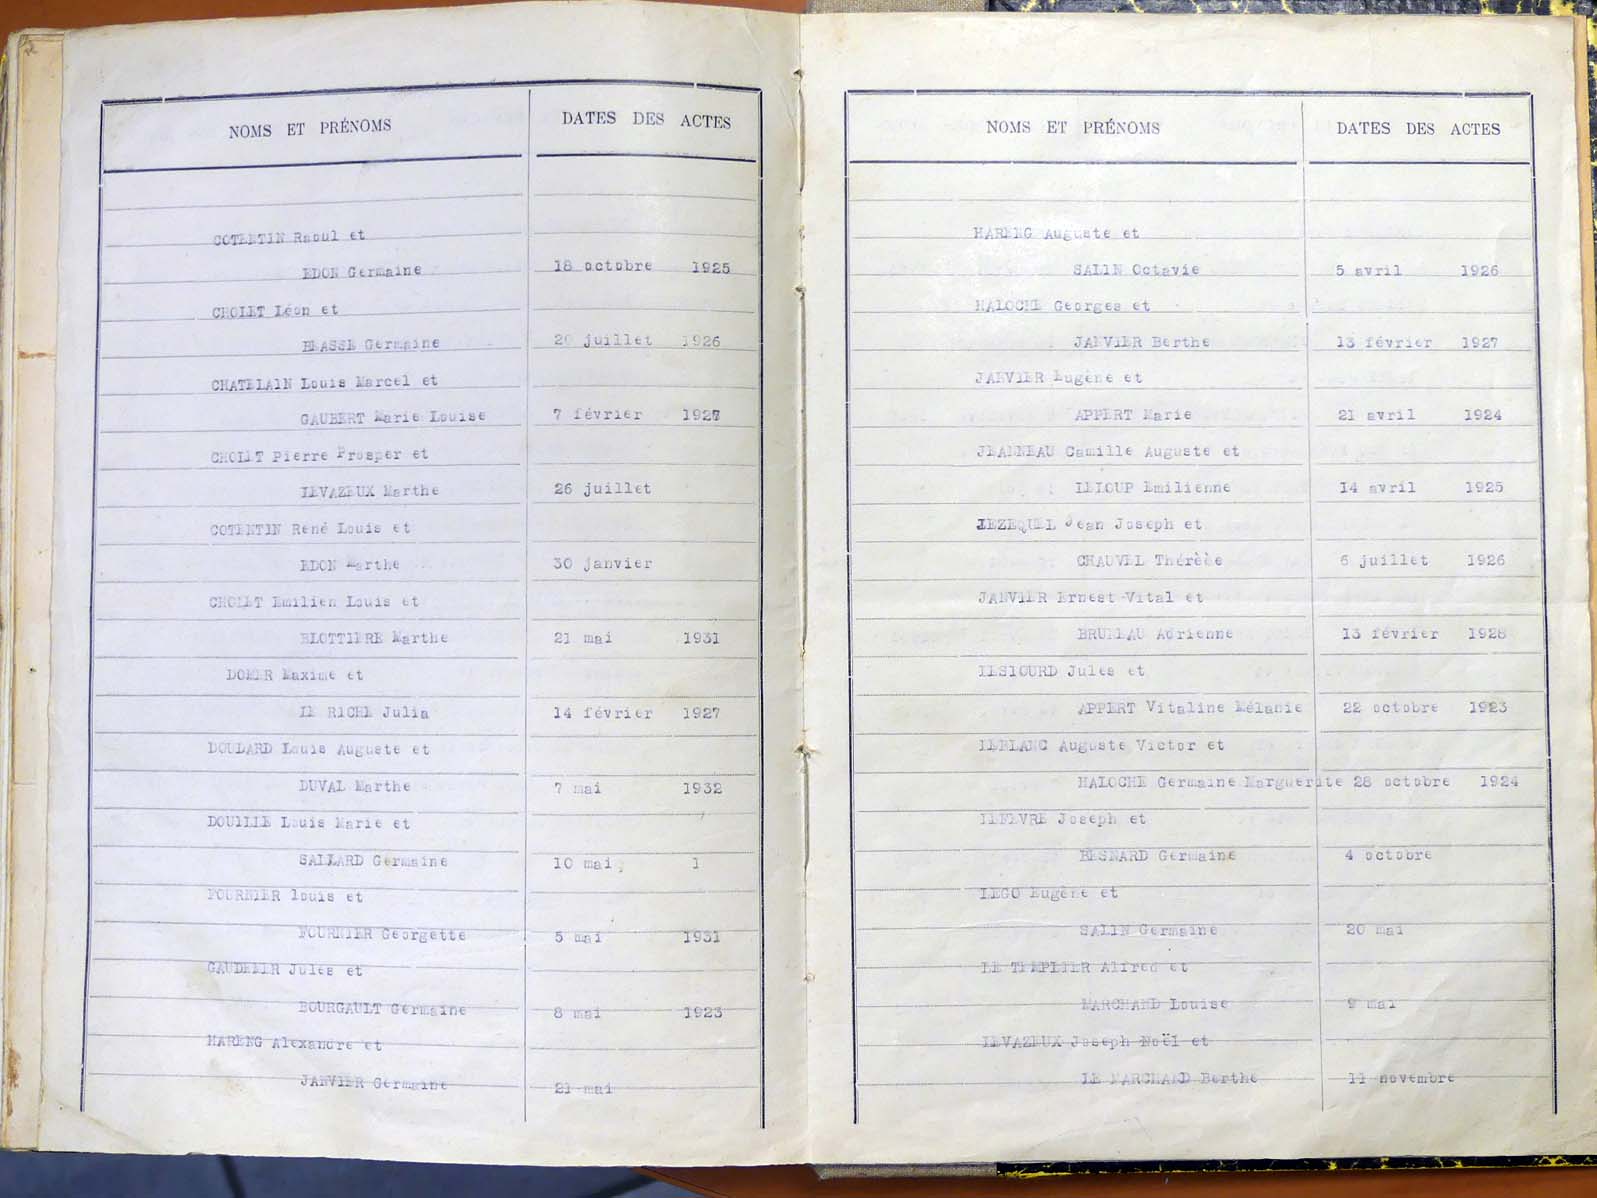 NOMS ET PRÉNOMS DATES DES ACTES
COTENTIN Raoul et
EDON Germaine 18 octobre 1925
CHOLET Léon et
BEASSE Germaine 20 juillet 1926
CHATELAIN Louis Marcel et
GAUBERT Marie Louise 7 février 1927
CHOLET Pierre Prosper et
LEVAZEUX Marthe 26 juillet
COTENTIN René Louis et
EDON Marthe 30 janvier
CHOLET Emilien Louis et
BLOTTIERE Marthe 21 mai 1931
DOMER Maxime et
LE RICHE Julia 14 février 1927
DOULARD Louis Auguste et
DUVAL Marthe 7 mai 1932
DOUILLE Louis Marie et
SALLARD Germaine 10 mai 1
FOURNIER louis et
FOURNIER Georgette 5 mai 1931
GAUDEMER Jules et
BOURGAULT Germaine 8 mai 1923
HARENG Alexandre et
JANVIER Germaine 21 mai
NOMS ET PRÉNOMS DATES DES ACTES
HARENG Auguste et
SALIN Octavie 5 avril 1926
HALOCHE Georges et
JANVIER Berthe 13 février 1927
JANVIER Eugène et
APPERT Marie 21 avril 1924
JEANNEAU Camille Auguste et
LELOUP Emilienne 14 avril 1925
JEZEQUEL Jean Joseph et
CHAUVEL Thérèèe 6 juillet 1926
JANVIER Ernest Vital et
BRUNEAU Adrienne 13 février 1928
LESIOURD Jules et
APPERT Vitaline Mélanie 22 octobre 1923
LEBLANC Auguste Victor et
HALOCHE Germaine Marguerite 28 octobre 1924
LEFEVRE Joseph et
BESNARD Germaine 4 octobre
LEGO Eugène et
SALIN Germaine 20 mai
LE TEMPLIER Alfred et
MARCHAND Louise 9 mai
LEVAZEUX Joseph Noël et
LE MARCHAND Berthe 11 novembre